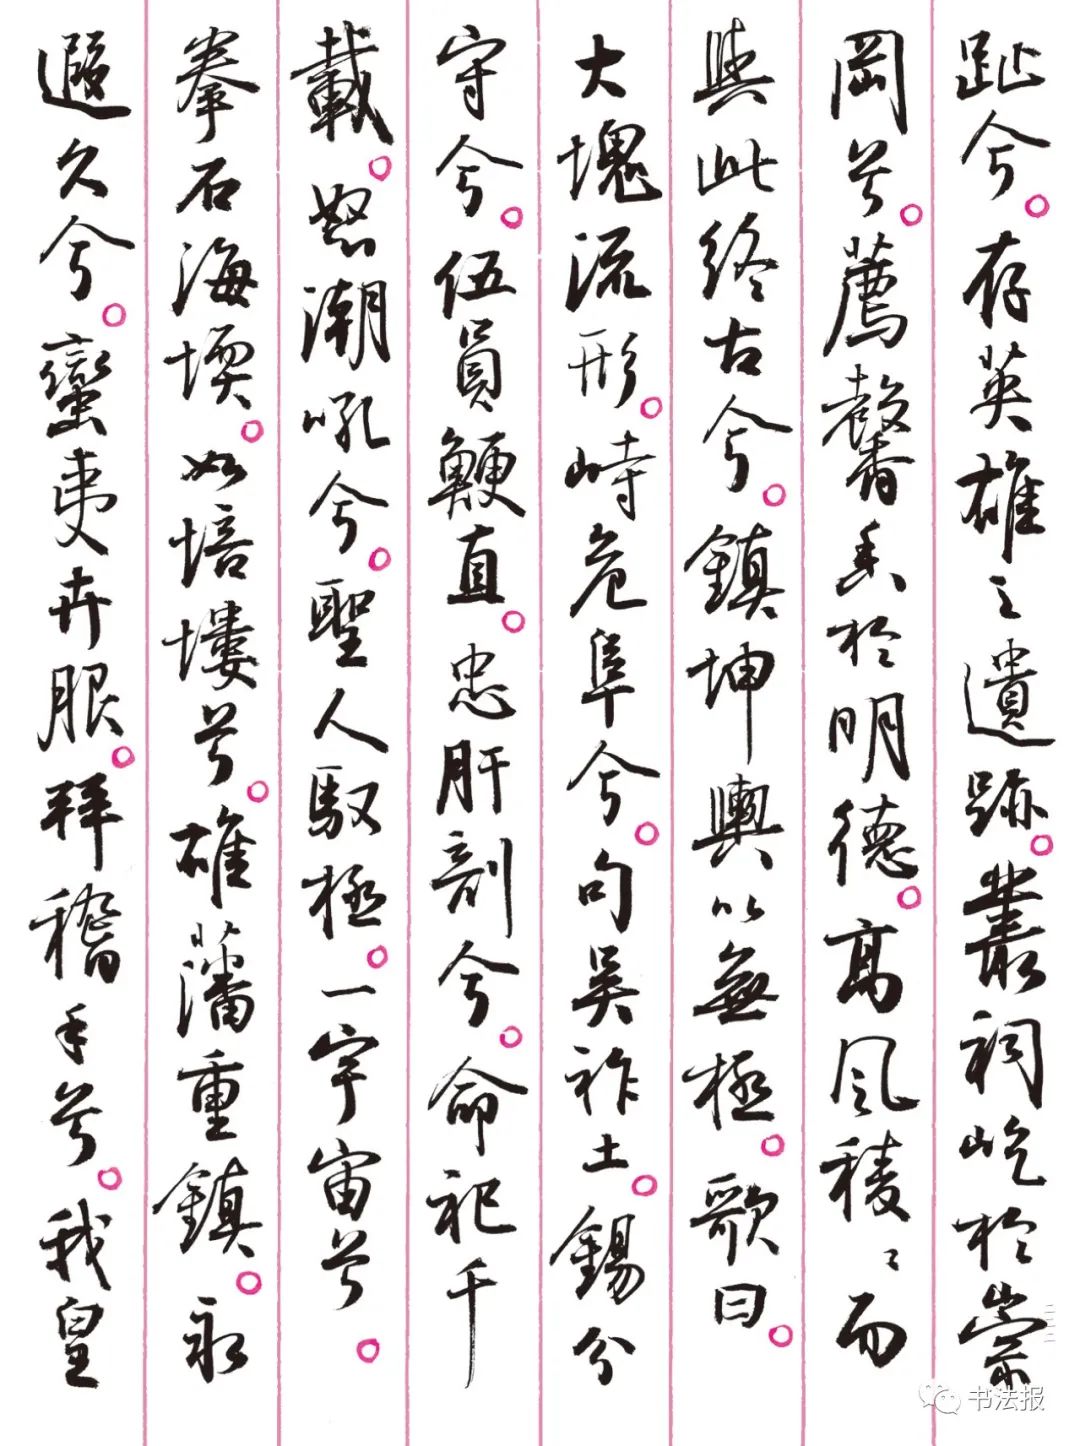 趾兮。存英雄之遺跡。叢祠屹於崇
岡兮。薦馨香於明德。高風稜稜而
與此終古兮。鎮坤輿以無極。歌曰。
大塊流形。峙危阜兮。句吳祚土。錫分
守兮。伍員鯁直。忠肝剖兮。命祀千
載。怒潮吼兮。聖人馭極。一宇宙兮。
拳石海堧。如培塿兮。雄藩重鎮。永
遐久兮。蠻夷卉服。拜稽手兮。我皇
书法报